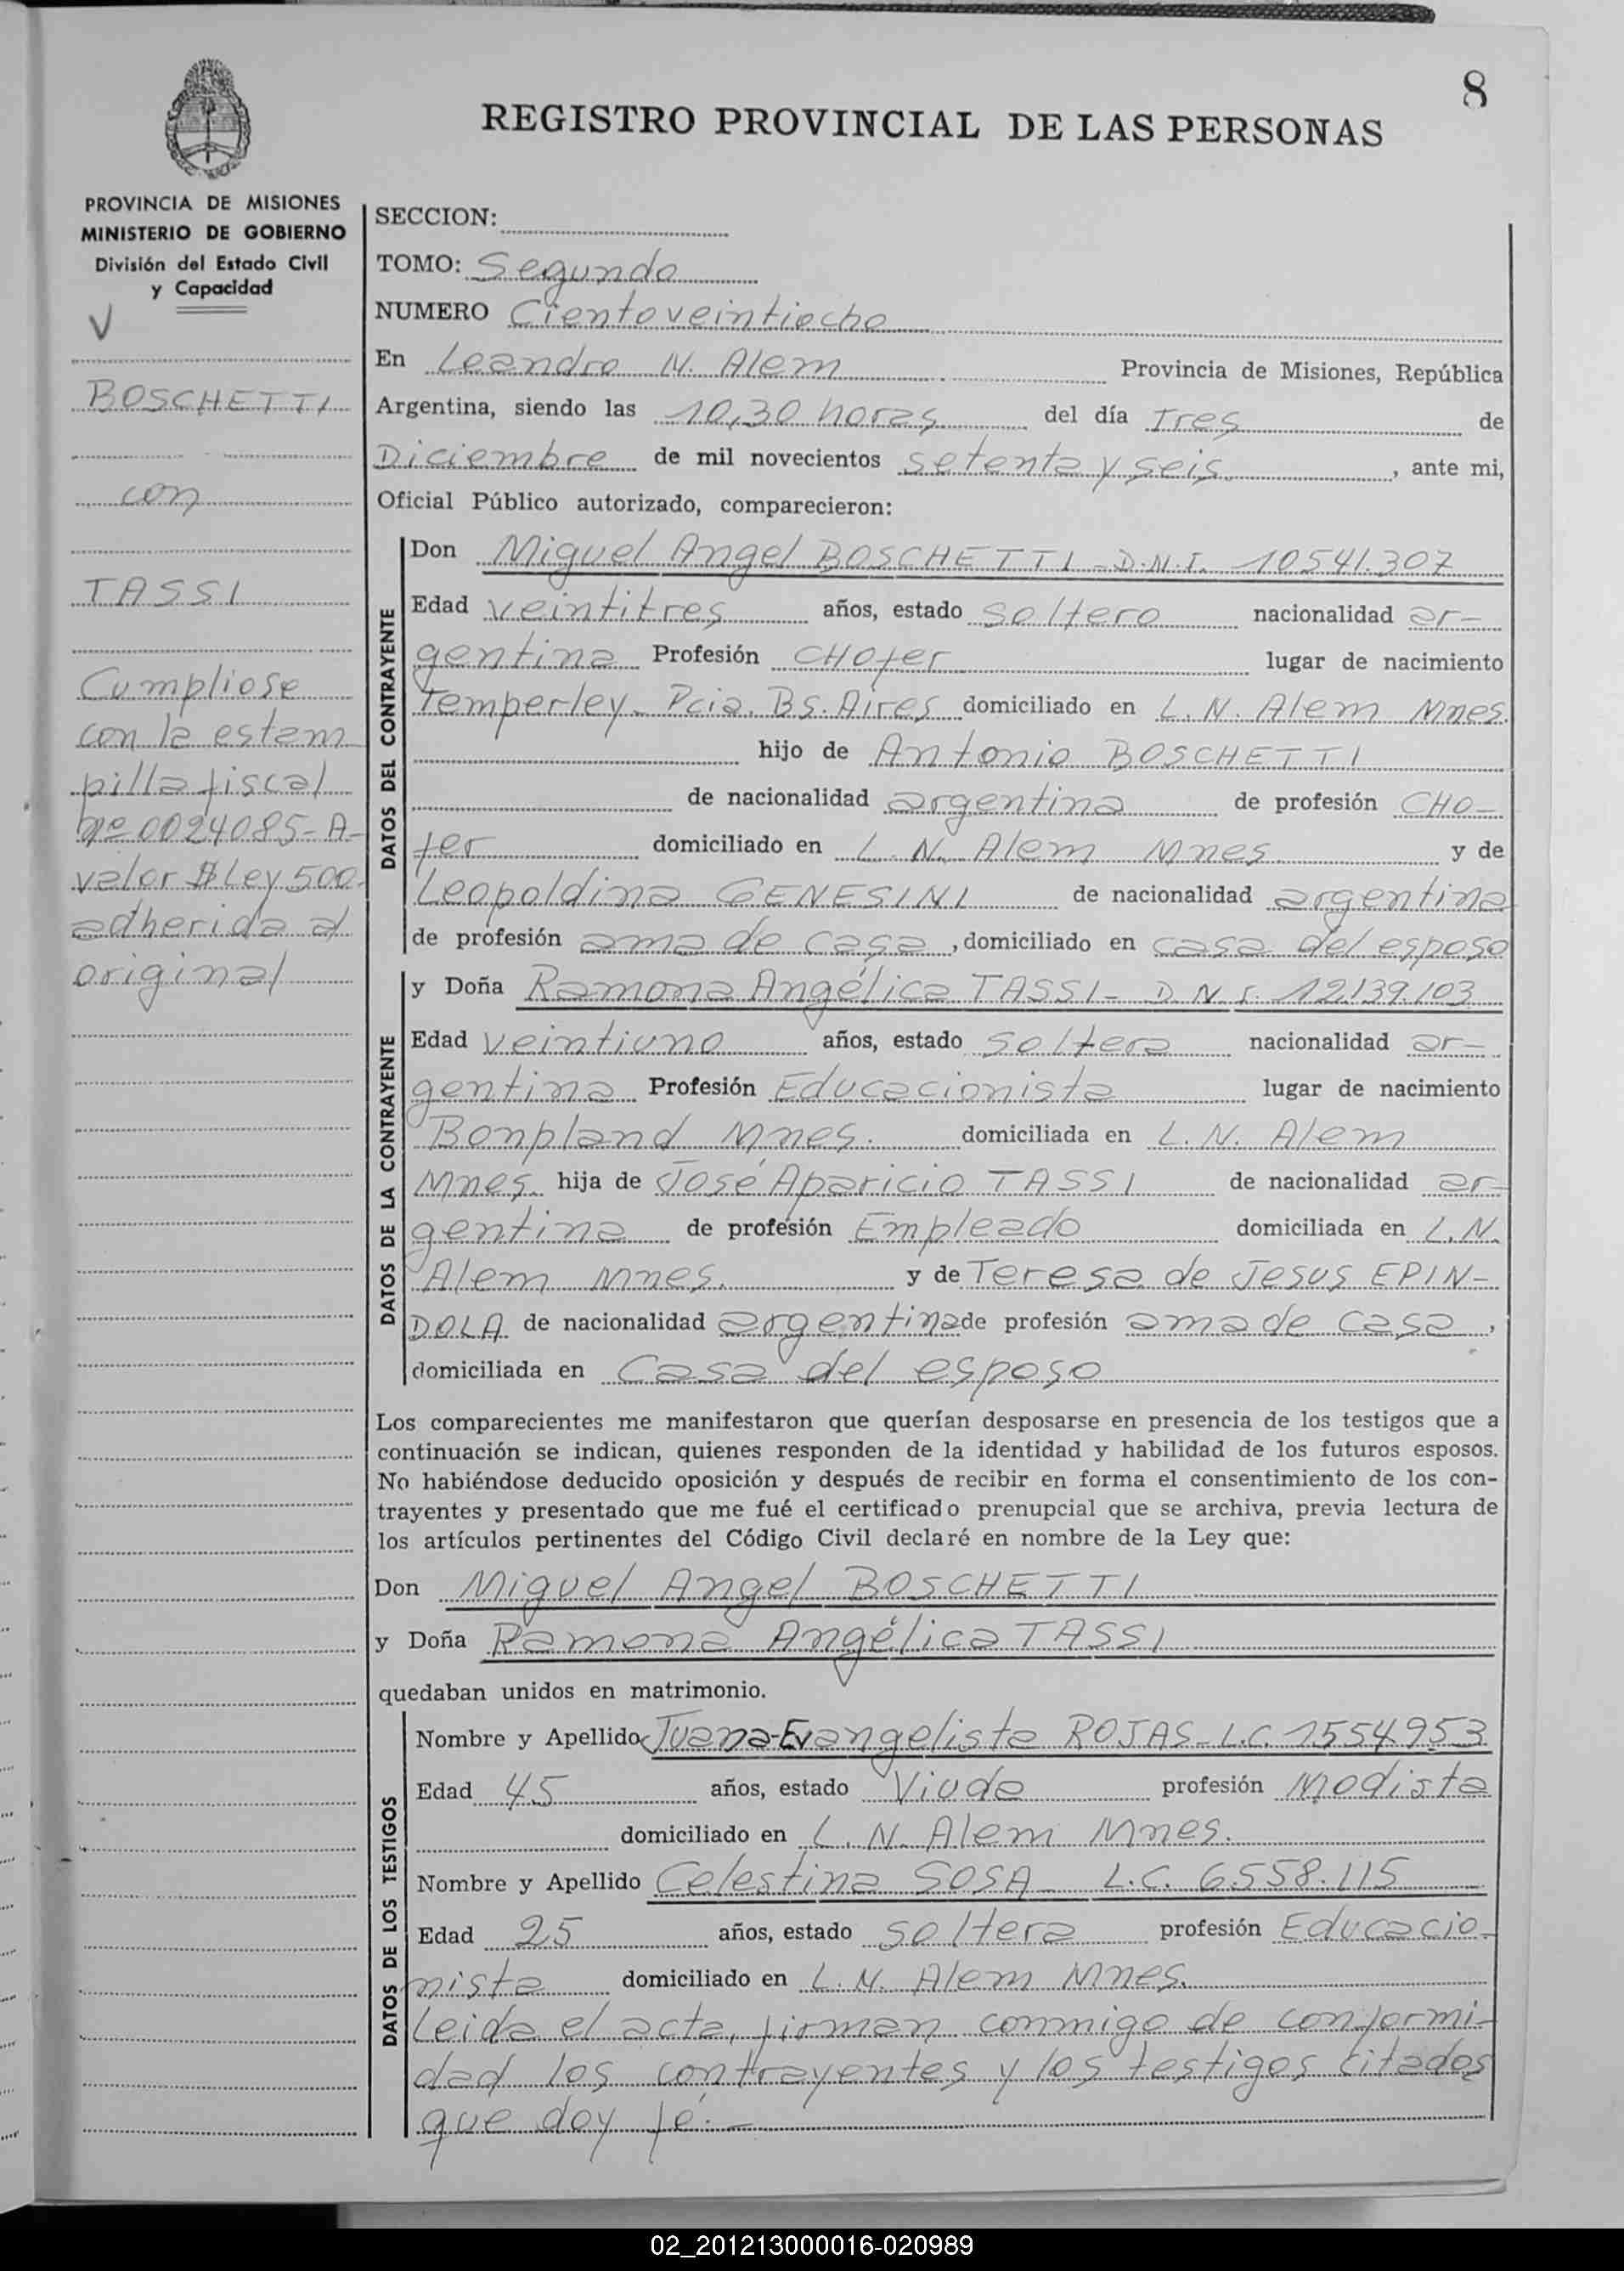 8
REGISTRO PROVINCIAL DE LAS PERSONAS
PROVINCIA DE MISIONES
MINISTERIO DE GOBIERNO
División del Estado Civil
y Capacidad
BOSCHETTI
con
TASSI
Cumpliose
con la estam
pilla fiscal
Nº 0024085-A-
valor $ Ley 500-
adherida al
original
SECCION:
TOMO: Segundo
NUMERO Cientoveintiocho
En Leandro N. Alem Provincia de Misiones, República
Argentina, siendo las 10,30 horas del día Tres de
Diciembre de mil novecientos setenta y seis. , ante mi,
Oficial Público autorizado, comparecieron:
DATOS DEL CONTRAYENTE
Don Miguel Angel BOSCHETTI - D.N.I. 10541.307
Edad veintitres años, estado soltero nacionalidad ar-
gentina Profesión CHOfer lugar de nacimiento
Temperley - Pcia. Bs. Aires domiciliado en L. N. Alem Mnes.
hijo de Antonio BOSCHETTI
de nacionalidad argentina de profesión CHO-
fer domiciliado en L. N. Alem Mnes. y de
Leopoldina GENESINI de nacionalidad argentina
de profesión ama de casa , domiciliado en casa del esposo
DATOS DE LA CONTRAYENTE
y Doña Ramona Angélica TASSI - D N I. 12.139.103
Edad veintiuno años, estado soltera nacionalidad ar-
gentina Profesión Educacionista lugar de nacimiento
Bonpland Mnes. domiciliada en L. N. Alem
Mnes. hija de José Aparicio TASSI de nacionalidad ar-
gentina de profesión Empleado domiciliada en L.N.
Alem Mnes. y de Teresa de Jesus EPIN-
DOLA de nacionalidad argentina de profesión ama de casa ,
domiciliada en Casa del esposo
Los comparecientes me manifestaron que querían desposarse en presencia de los testigos que a
continuación se indican, quienes responden de la identidad y habilidad de los futuros esposos.
No habiéndose deducido oposición y después de recibir en forma el consentimiento de los con-
trayentes y presentado que me fué el certificado prenupcial que se archiva, previa lectura de
los artículos pertinentes del Código Civil declaré en nombre de la Ley que:
Don Miguel Angel BOSCHETTI
y Doña Ramona Angélica TASSI
quedaban unidos en matrimonio.
DATOS DE LOS TESTIGOS
Nombre y Apellido Juana-Evangelista ROJAS - L.C. 1554.953
Edad 45 años, estado Viuda profesión Modista
domiciliado en L. N. Alem Mnes.
Nombre y Apellido Celestina SOSA - L.C. 6.558.115
Edad 25 años, estado soltera profesión Educacio-
nista domiciliado en L. N. Alem Mnes.
Leida el acta, firman conmigo de conformi-
dad los contrayentes y los testigos citados
que doy fé.-
02_201213000016-020989